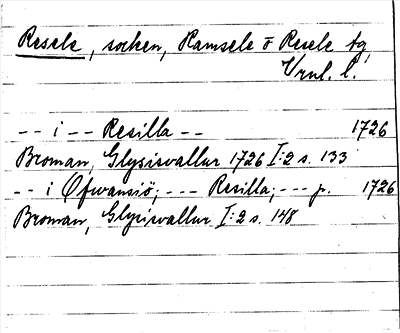 Resele, socken, Ramsele o Resele tg,
Vrnl. l.
-- i -- Resilla -- 1726
Broman, Glysisvallur 1726 I:2 s. 133
-- i Ofwansiö; --- Resilla; --- p. 1726
Broman, Glysisvallur I:2 s. 148